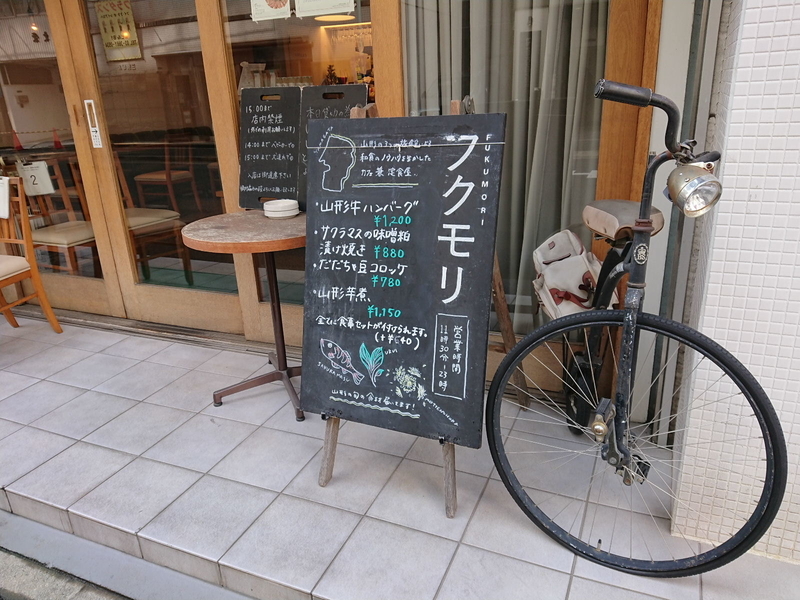 15:00まで
店内禁煙
14:00まで
15:00まで
2
山形の3つの旅館
和食のノウハウを生かした
カフェ兼定食屋
FUKUMORI
フクモリ
・山形牛ハンバーグ
¥1,200
・サクラマスの味噌粕
漬け焼き ¥880
・だだちゃ豆コロッケ
¥780
・山形芋煮、
¥1,150
全てに食事セットが付けられます。
(+¥640)
営業時間
11時30分-23時
SAKURA MASU
URUI
山形の旬の食材届いてます!